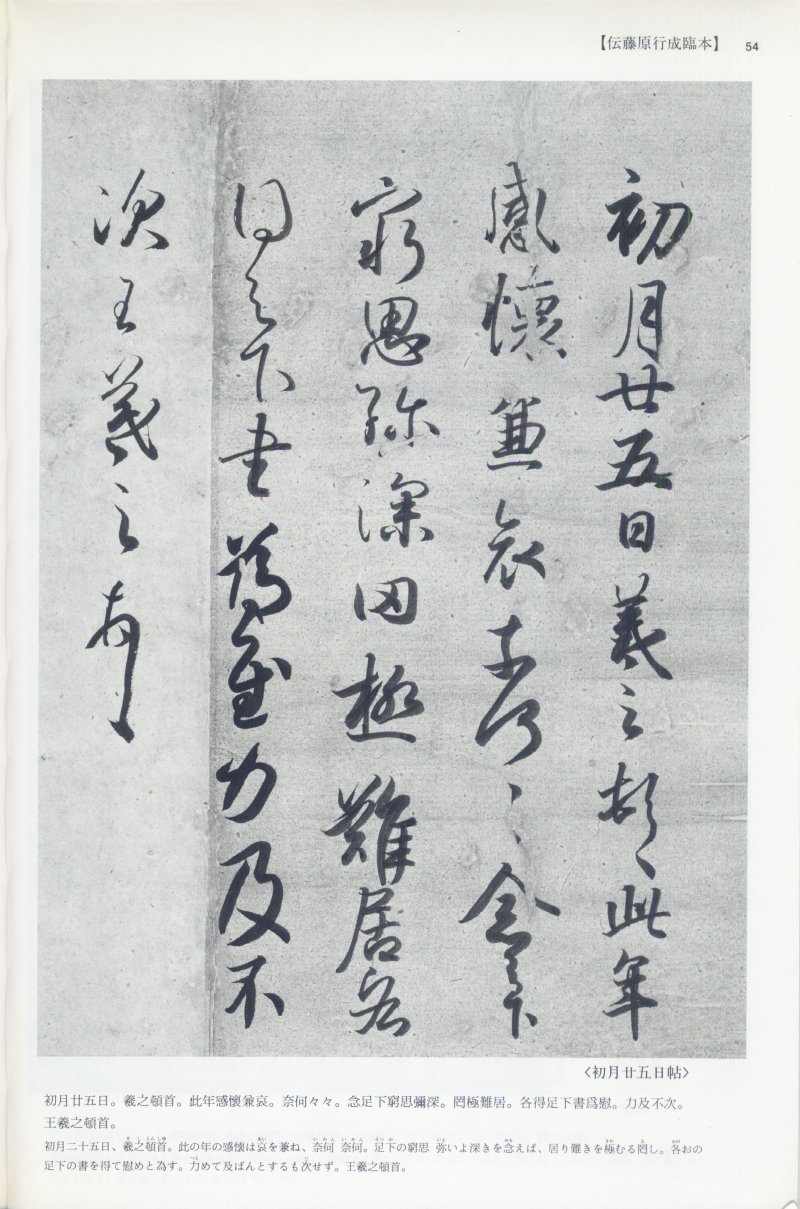 【伝藤原行成臨本】 54
初月廿五日羲之頓〻此年
感懐兼哀奈何〻念足下
窮思弥深罔極難居各
得足下書為慰力及不
次王羲之頓首
〈初月廿五日帖〉
初月廿五日。羲之頓首。此年感懷兼哀。奈何々々。念足下窮思彌深。罔極難居。各得足下書爲慰。力及不次。
王羲之頓首。
初月二十五日、羲之頓首。此の年の感懐は哀を兼ね、奈何 奈何。足下の窮思 弥いよ深きを念えば、居り難きを極むる罔し。各おの
足下の書を得て慰めと為す。力めて及ばんとするも次せず。王羲之頓首。